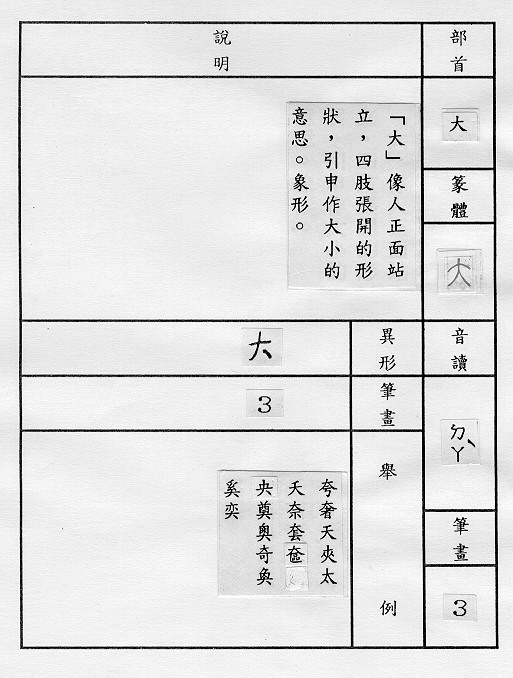 部首
大
篆體
大
音讀
ㄉㄚˋ
筆畫
3
說明
「大」像人正面站
立，四肢張開的形
狀，引申作大小的
意思。象形。
異形
大
筆畫
3
舉例
夸奢天夾太
夭奈套奩
央奠奧奇奐
奚奕